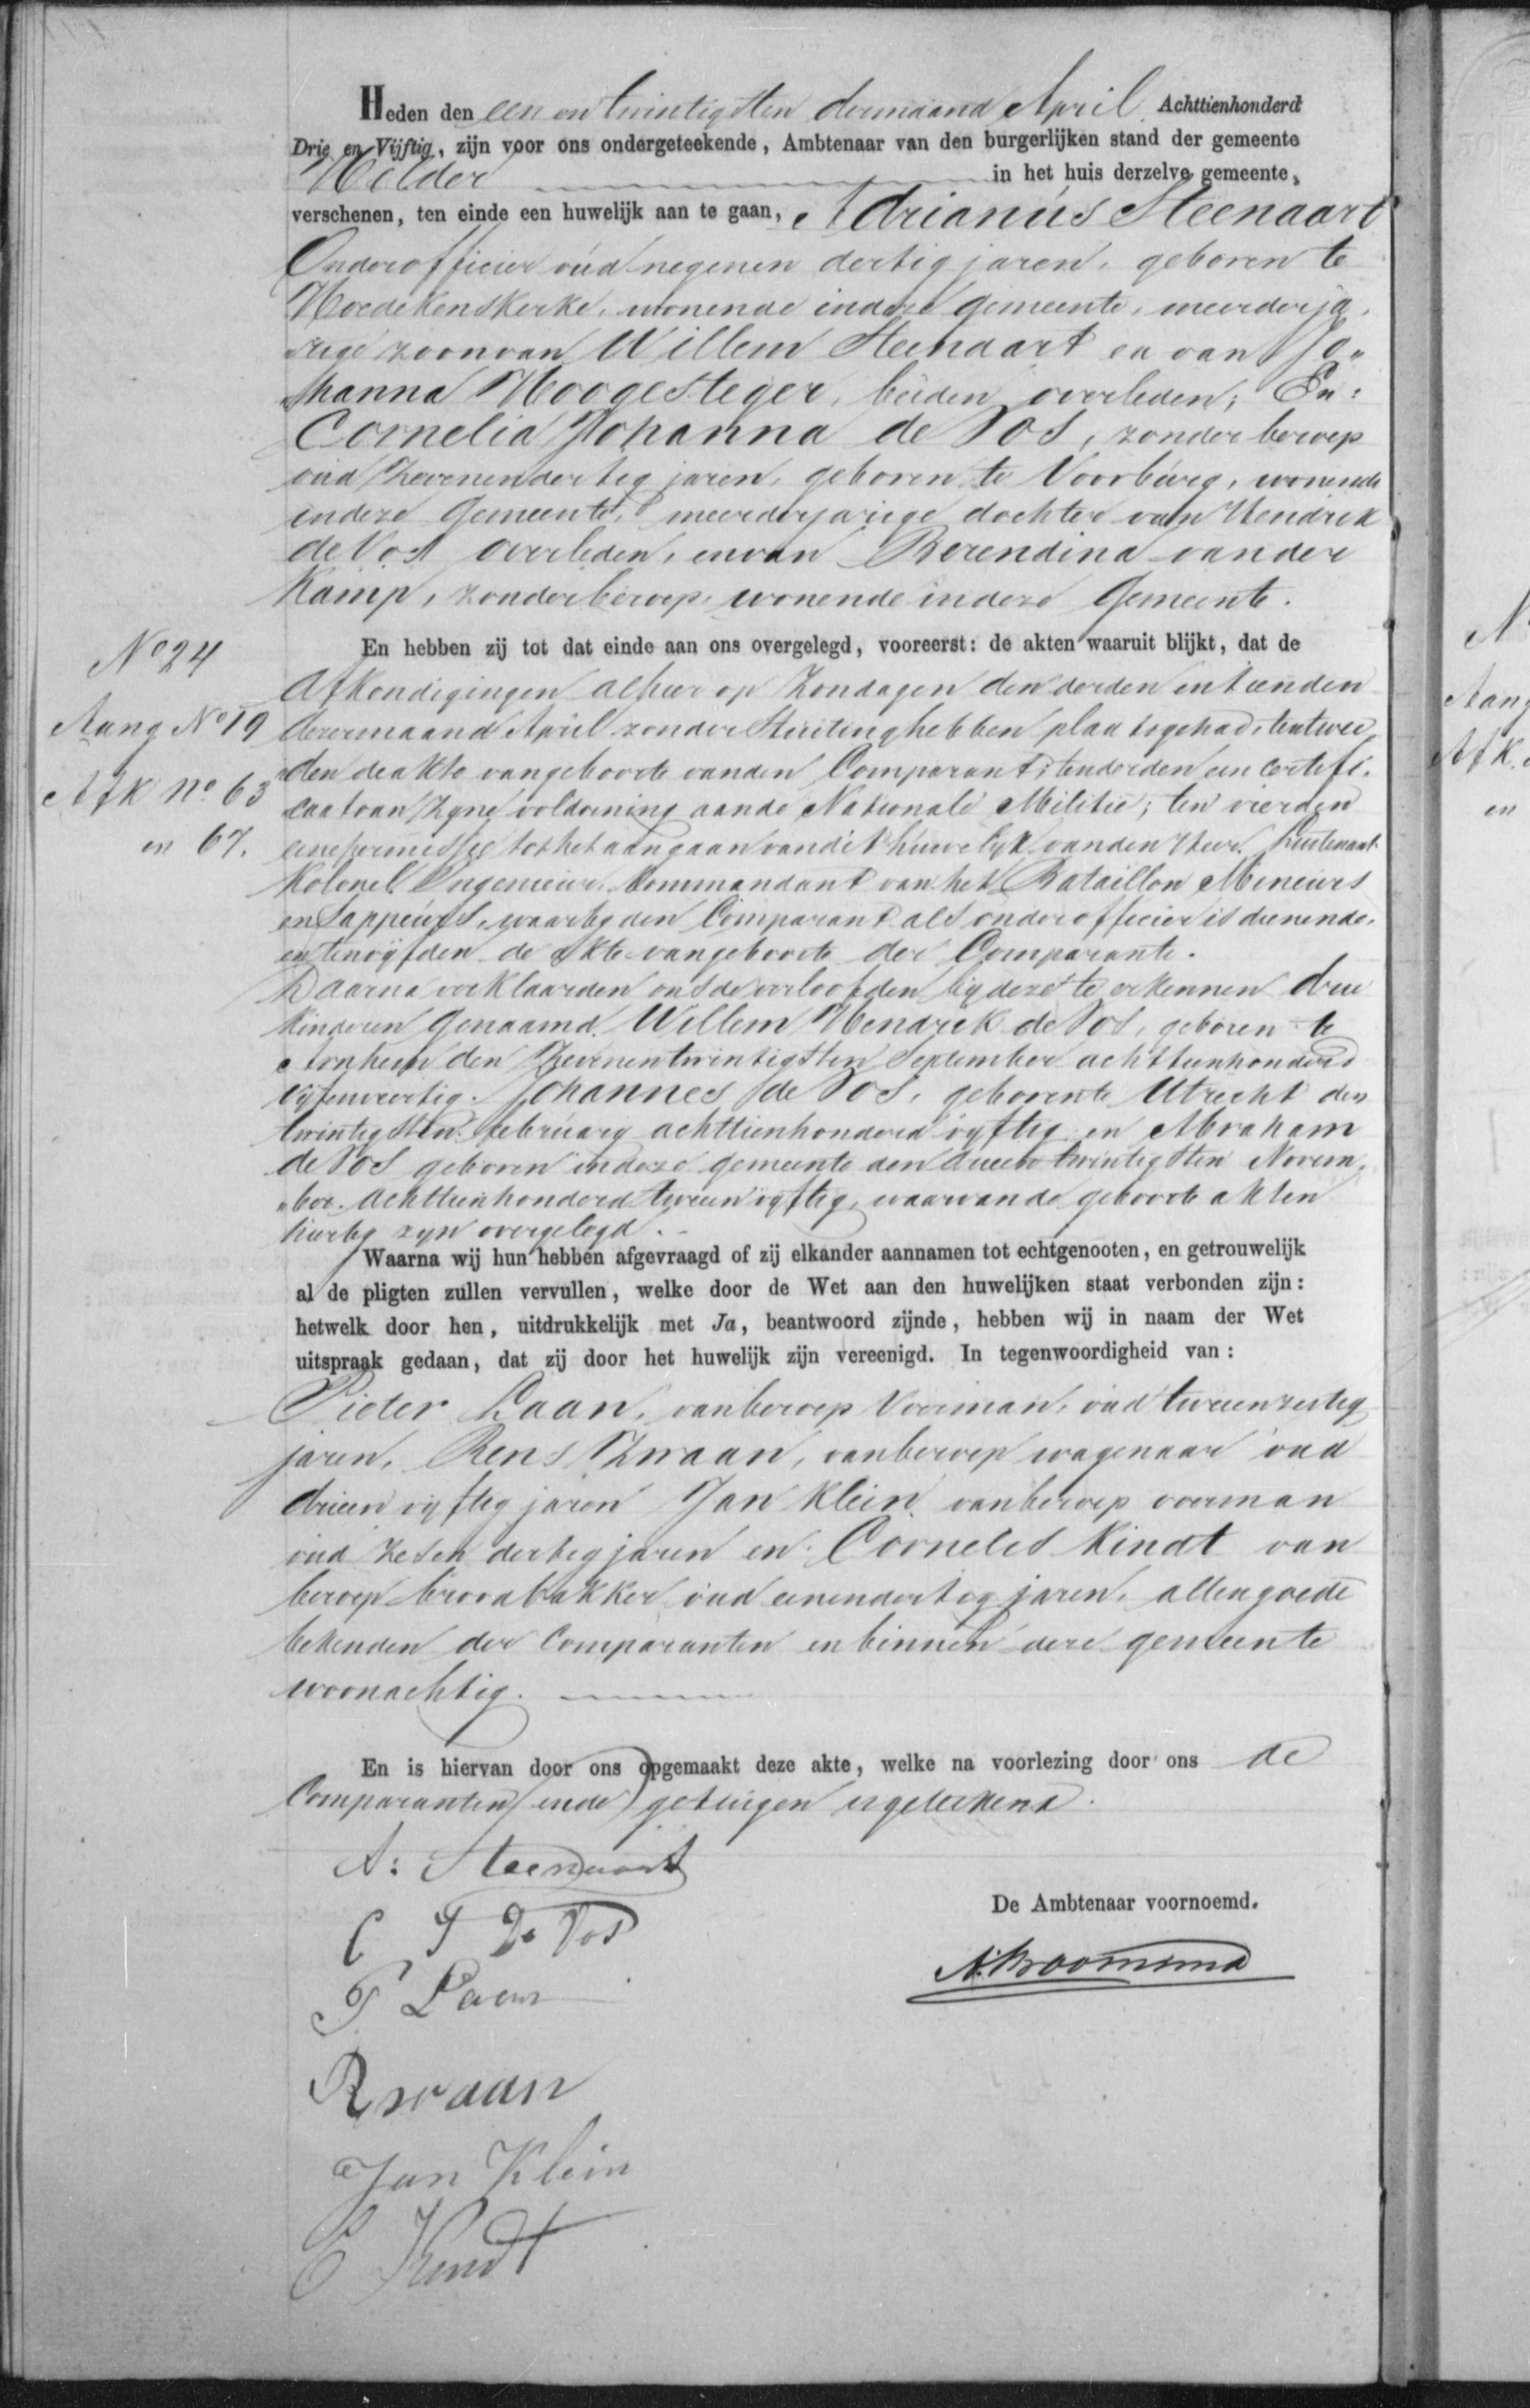 Heden den een en twintigsten dermaand April Achttienhonderd
Drie en Vijftig, zijn voor ons ondergeteekende, Ambtenaar van den burgerlijken stand der gemeente
Helder in het huis derzelve gemeente,
verschenen, ten einde een huwelijk aan te gaan, Adrianus Steenaart
Onderofficier oud negenen dertig jaren, geboren te
Hoedekenskerke, wonende indeze gemeente, meerderja„
„rige zoon van Willem Steenaart en van Jo„
„hanna Hoogesteger, beiden overleden; En:
Cornelia Johanna de Vos, zonder beroep
oud zevenendertig jaren, geboren te Voorburg, wonende
indeze Gemeente, meerderjarige dochter van Hendrik
de Vos overleden, en van Berendina van der
Kamp, zonder beroep, wonende indeze Gemeente.
En hebben zij tot dat einde aan ons overgelegd, vooreerst: de akten waaruit blijkt, dat de
No 24
Afkondigingen alhier op Zondagen den derden en tienden
Aang No 19
dezermaand April zonder Stuiting hebben plaatsgehad, tentwee„
Afk No. 63
„den de akte van geboorte van den Comparant; tenderden een certifi„
caat van zyne voldoening aan de Nationale Militie; ten vierden
en 67.
eene permissie tot het aangaan van dit huwelyk van den Heer Luitenant
Kolonel Ingenieur, Commandant van het Bataillon Mineurs
en Sappeurs, waarby den Comparant als onderofficier is dienende,
en tenvyfden de akte van geboorte der Comparante.
Daarna verklaarden ons de verloofden by deze te erkennen drie
kinderen Genaamd Willem Hendrik de Vos, geboren te
Arnhem den zevenentwintigsten September achttienhonderd
vyfenveertig. Johannes de Vos, geboren te Utrecht den
twintigsten february achttienhonderd vyftig en Abraham
de Vos geboren indeze gemeente den drieentwintigsten Novem„
„ber achttienhonderd tweeenvyftig, waarvan de geboorte akten
hierby zyn overgelegd.
Waarna wij hun hebben afgevraagd of zij elkander aannamen tot echtgenooten, en getrouwelijk
al de pligten zullen vervullen, welke door de Wet aan den huwelijken staat verbonden zijn:
hetwelk door hen, uitdrukkelijk met Ja, beantwoord zijnde, hebben wij in naam der Wet
uitspraak gedaan, dat zij door het huwelijk zijn vereenigd. In tegenwoordigheid van:
Pieter Laan, van beroep Voerman, oud tweeenzestig
jaren, Rens Zwaan, van beroep wagenaar oud
drieenvyftig jaren Jan Klein van beroep voerman
oud zesen dertig jaren en Cornelis Kindt van
beroep broodbakker oud eenendertig jaren, allen goede
bekenden der Comparanten en binnen deze gemeente
woonachtig.
En is hiervan door ons opgemaakt deze akte, welke na voorlezing door ons de
Comparanten en de getuigen is geteekend.
A: Steenaart
De Ambtenaar voornoemd.
C J De Vos
P Laan
R zwaan
Jan Klein
C Kindt
Aang
Afk.
en